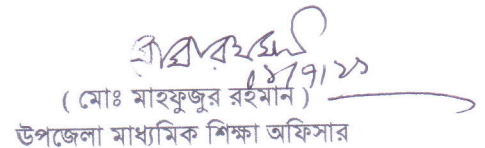 ( মোঃ মাহফুজুর রহমান )
উপজেলা মাধ্যমিক শিক্ষা অফিসার